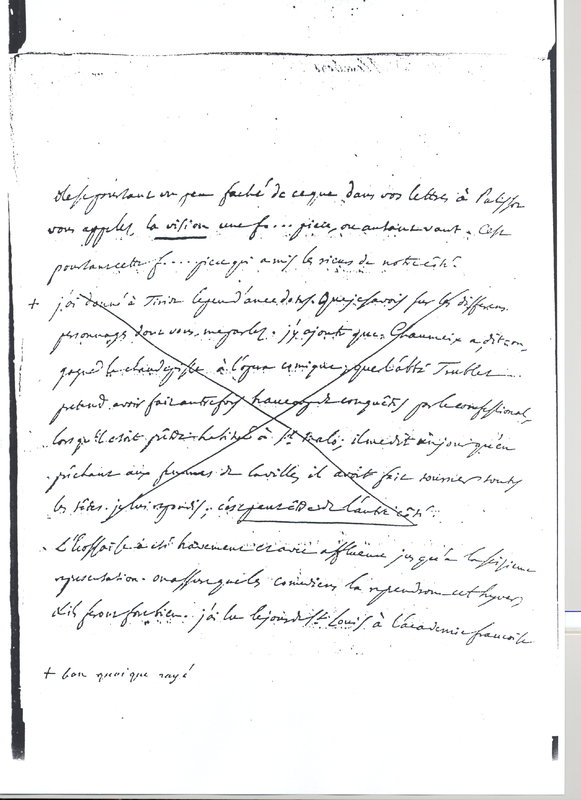 je suis pourtant un peu faché de ce que dans vos lettres à Palissot
vous appellés la vision une f.... piece, ou autant vaut. C'est
pourtant cette f.... piece qui a mis les rieurs de notre côté.
+ j'ai donné à Tiriot le peu d'anecdotes que je savois sur les differens
personnages dont vous me parlés. j'y ajoute que Chaumeix a, dit on,
gagné la chaudepisse à l'opera comique; que l'abbé Trublet
pretend avoir fait autrefois beaucoup de conquêtes par le confessional,
lorsqu'il etoit prêtre habitué à St Malo; il me dit un jour qu'en
prêchant aux femmes de la ville, il avoit fait tourner toutes
les têtes. je lui repondis; c'est peut être de l'autre côté.
L'Ecossaise a été bravement et avec affluence jusqu'à la seizieme
representation. on assure que les comediens la reprendront cet hyver,
& ils feront fort bien. j'ai lu le jour de St Louis à l'academie françoise
+ bon quoique rayé